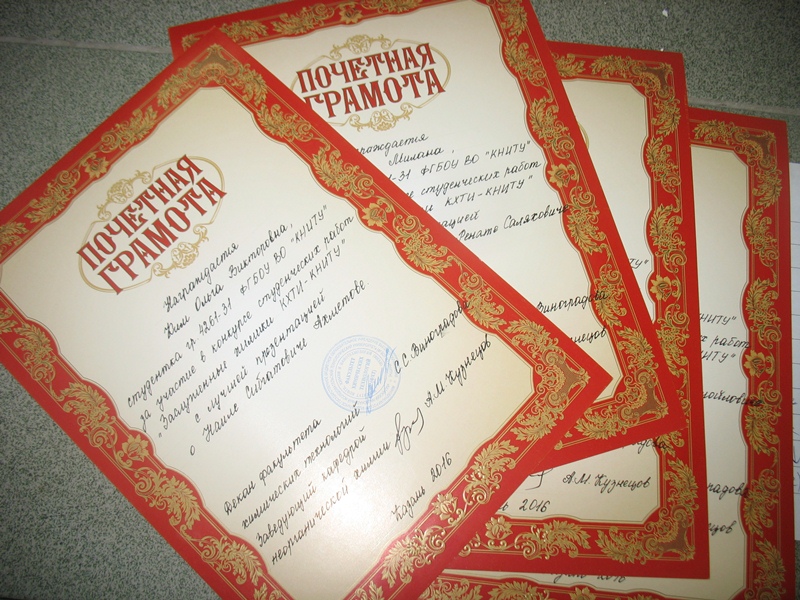 ПОЧЕТНАЯ
ГРАМОТА
Награждается
Ким Ольга Викторовна,
студентка гр. 4261-31 ФГБОУ ВО "КНИТУ"
за участие в конкурсе студенческих работ
"Заслуженные химики КХТИ-КНИТУ"
с лучшей презентацией
о Наиле Сибгатовиче Ахметове.
Декан факультета
химических технологий С.С. Виноградова
Заведующий кафедрой
неорганической химии А.М. Кузнецов
Казань 2016
ПОЧЕТНАЯ
ГРАМОТА
Милана,
1-31 ФГБОУ ВО "КНИТУ"
студенческих работ
КХТИ-КНИТУ"
Ренато Саляховиче
Виноградова
А.М. Кузнецов
2016
КНИТУ"
работ